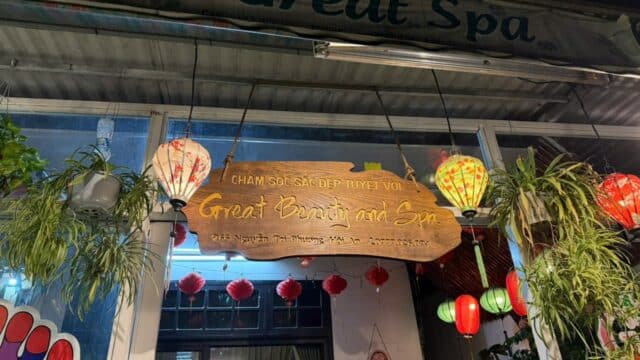 Great Spa
CHĂM SÓC SẮC ĐẸP TUYỆT VỜI
Great Beauty and Spa
Nguyễn Thị Phương Hội An